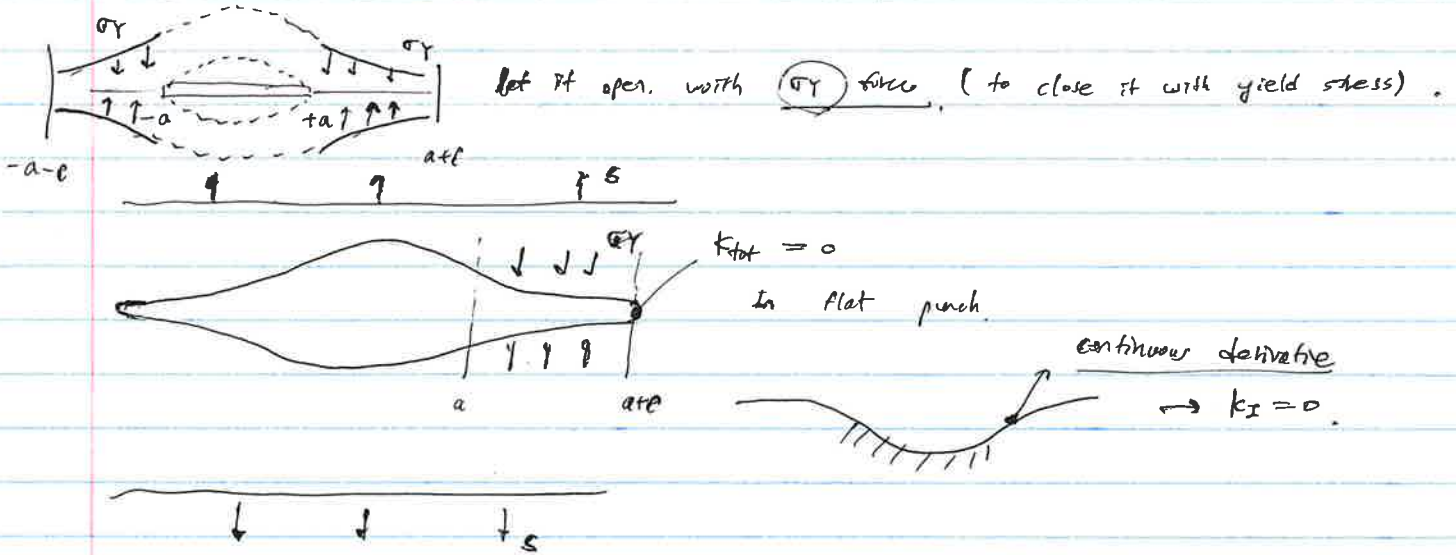 σY
σY
let it open. with σY force. (to close it with yield stress).
-a
+a
-a-ℓ
a+ℓ
s
σY
K_tot = 0
In flat punch.
continuous derivative
→ k_I = 0.
a
a+ℓ
s